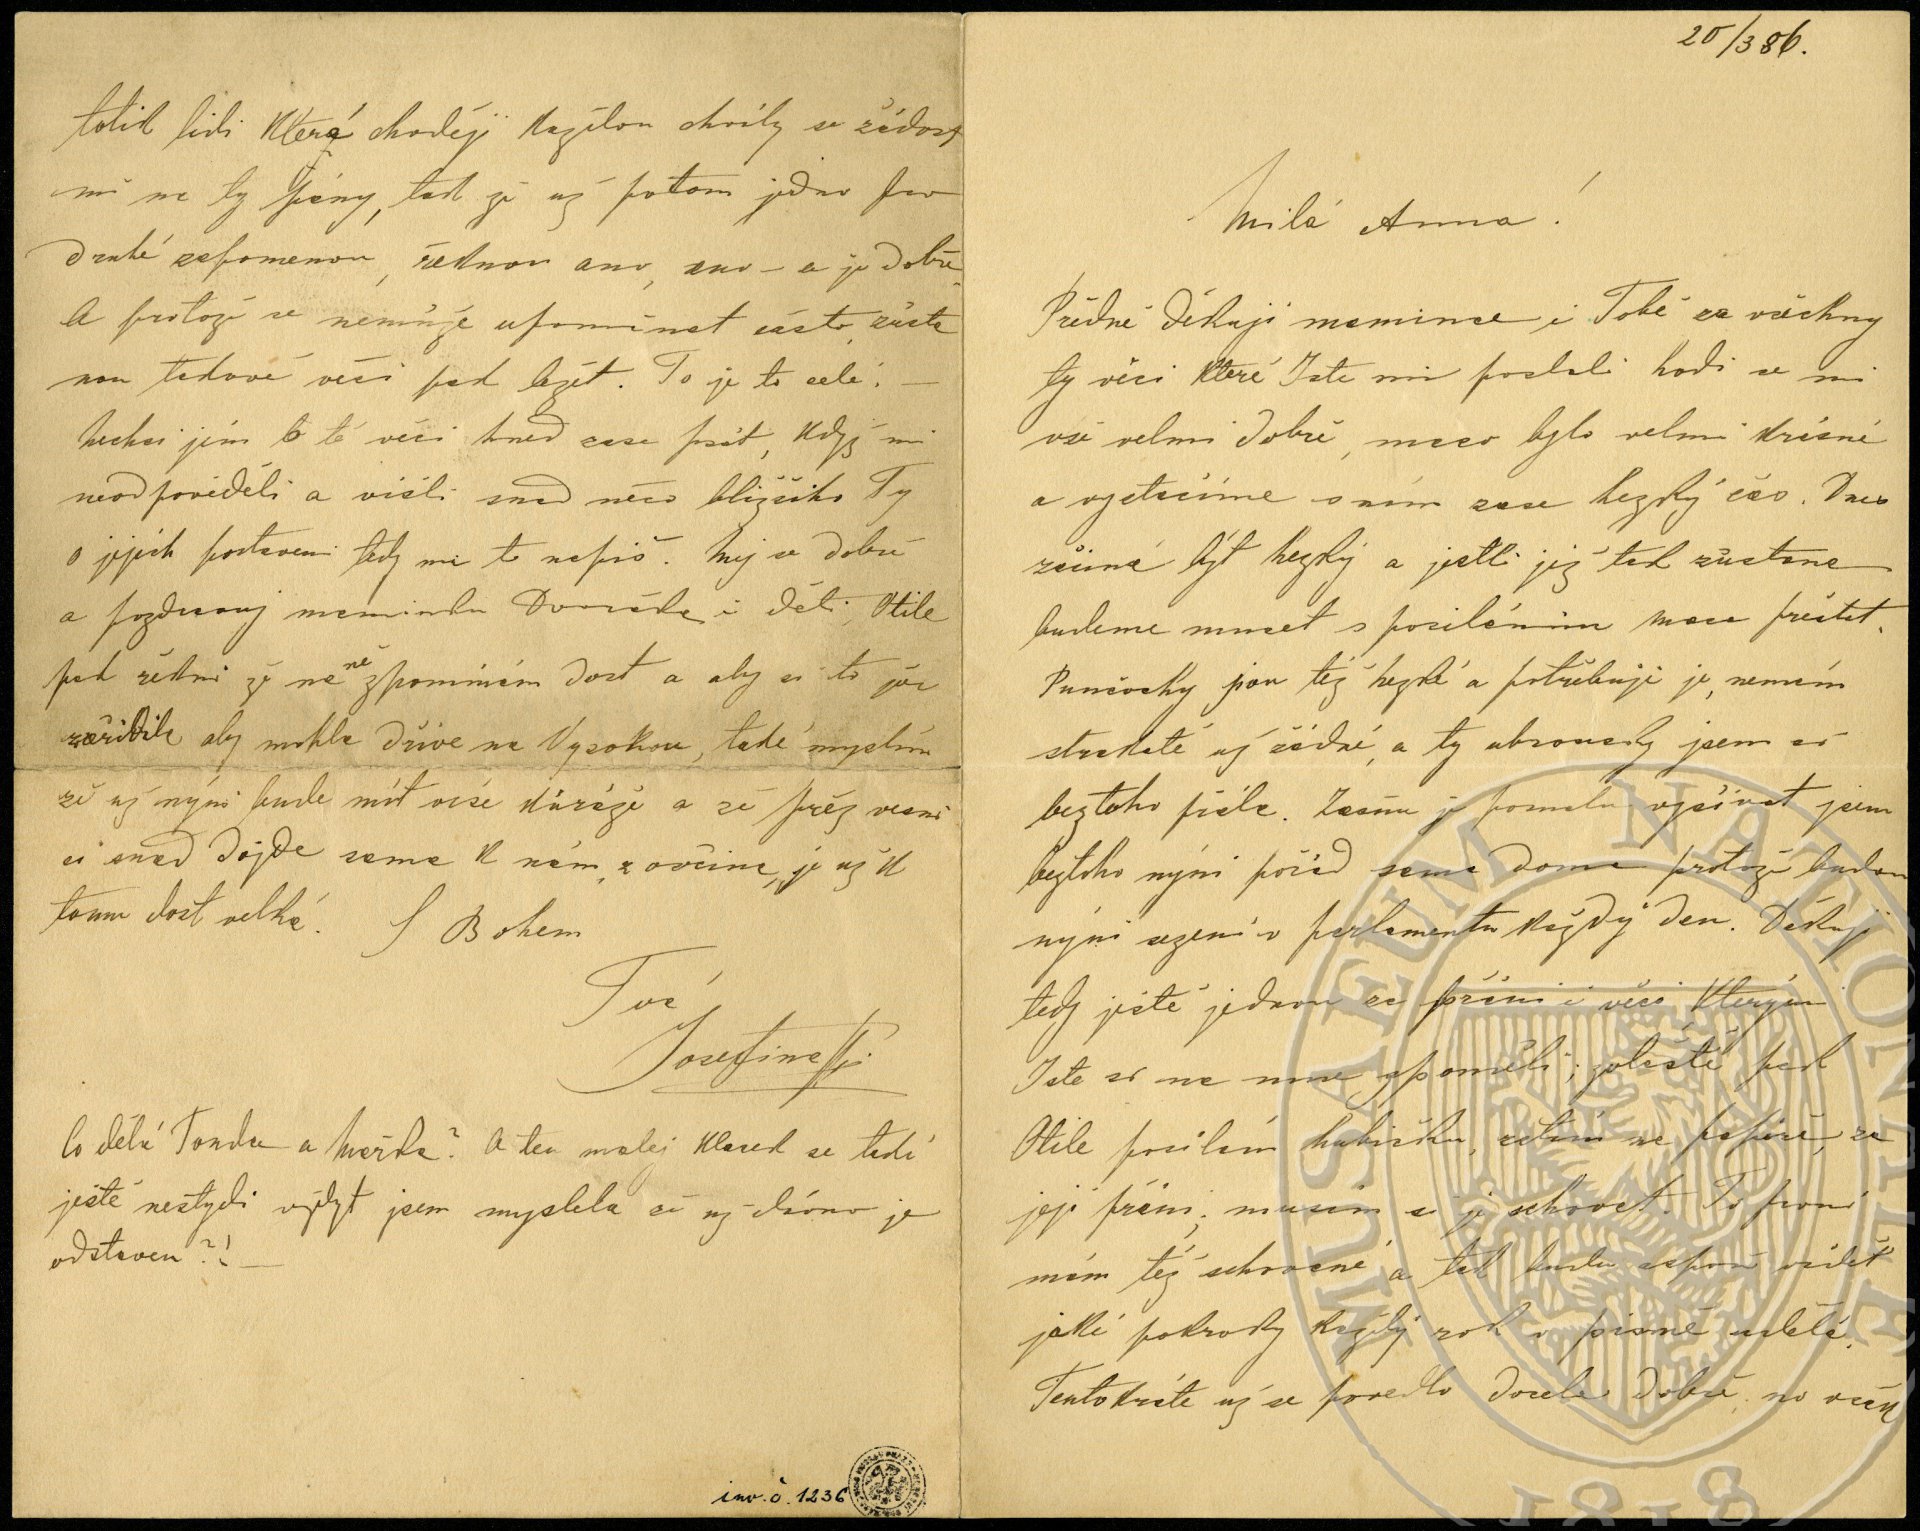 20/3 86.
Milá Anna!
Předně děkuji mamince i Tobě za všechny
ty věci které Jste mi poslali hodí se mi
vše velmi dobře, maso bylo velmi krásné
a vystačíme s ním zase hezký čas. Dnes
začíná být hezky a jestli již tak zůstane
budeme muset s posíláním masa přestat.
Punčochy jsou též hezké a potřebuji je, nemám
strakaté už žádné, a ty ubrousky jsem si
beztoho přála. Začnu je pomalu vyšívat jsem
beztoho nyní pořád sama doma protože budou
nyní sezení v parlamentu každý den. Děkuji
tedy ještě jednou za přání i věci kterými
Jste si na mne zpoměli; zvláště pak
Otile posílám hubičku, zatím na papíře, za
její přání, musím si je schovat. To první
mám též schované a tak budu aspoň vidět
jaké pokroky každý rok v písmě udělá.
Tentokráte už se povedlo docela dobře, no však
tolik lidí která chodějí každou chvíly se žádost
mi na ty pány, tak že už potom jedno pro
druhé zapomenou, řeknou ano, ano – a je dobře.
A protože se nemůže upomínat často, zůsta
nou takové věci pak ležet. To je to celé. —
Nechci jim o té věci hned zase psát, když mi
neodpověděli a víšli snad něco bližšího Ty
o jejich postavení tedy mi to napiš. Měj se dobře
a pozdravuj maminku Dvořáka i děti, Otile
pak řekni že na ně zpomínám dost a aby si to jen
zařídila aby mohla dříve na Vysokou, také myslím
že už nyní bude mít více kuráže a že přez vesni
ci snad dojde sama k nám, z ovčína, je už k
tomu dost velká. S Bohem
Tvá
Josefina
Co dělá Tonda a Mařka? A ten malej klacek se také
ještě nestydí vždyt jsem myslela že už dávno je
odstaven?! —
inv. č. 1236
MUSAEUM NATIONALE
1818